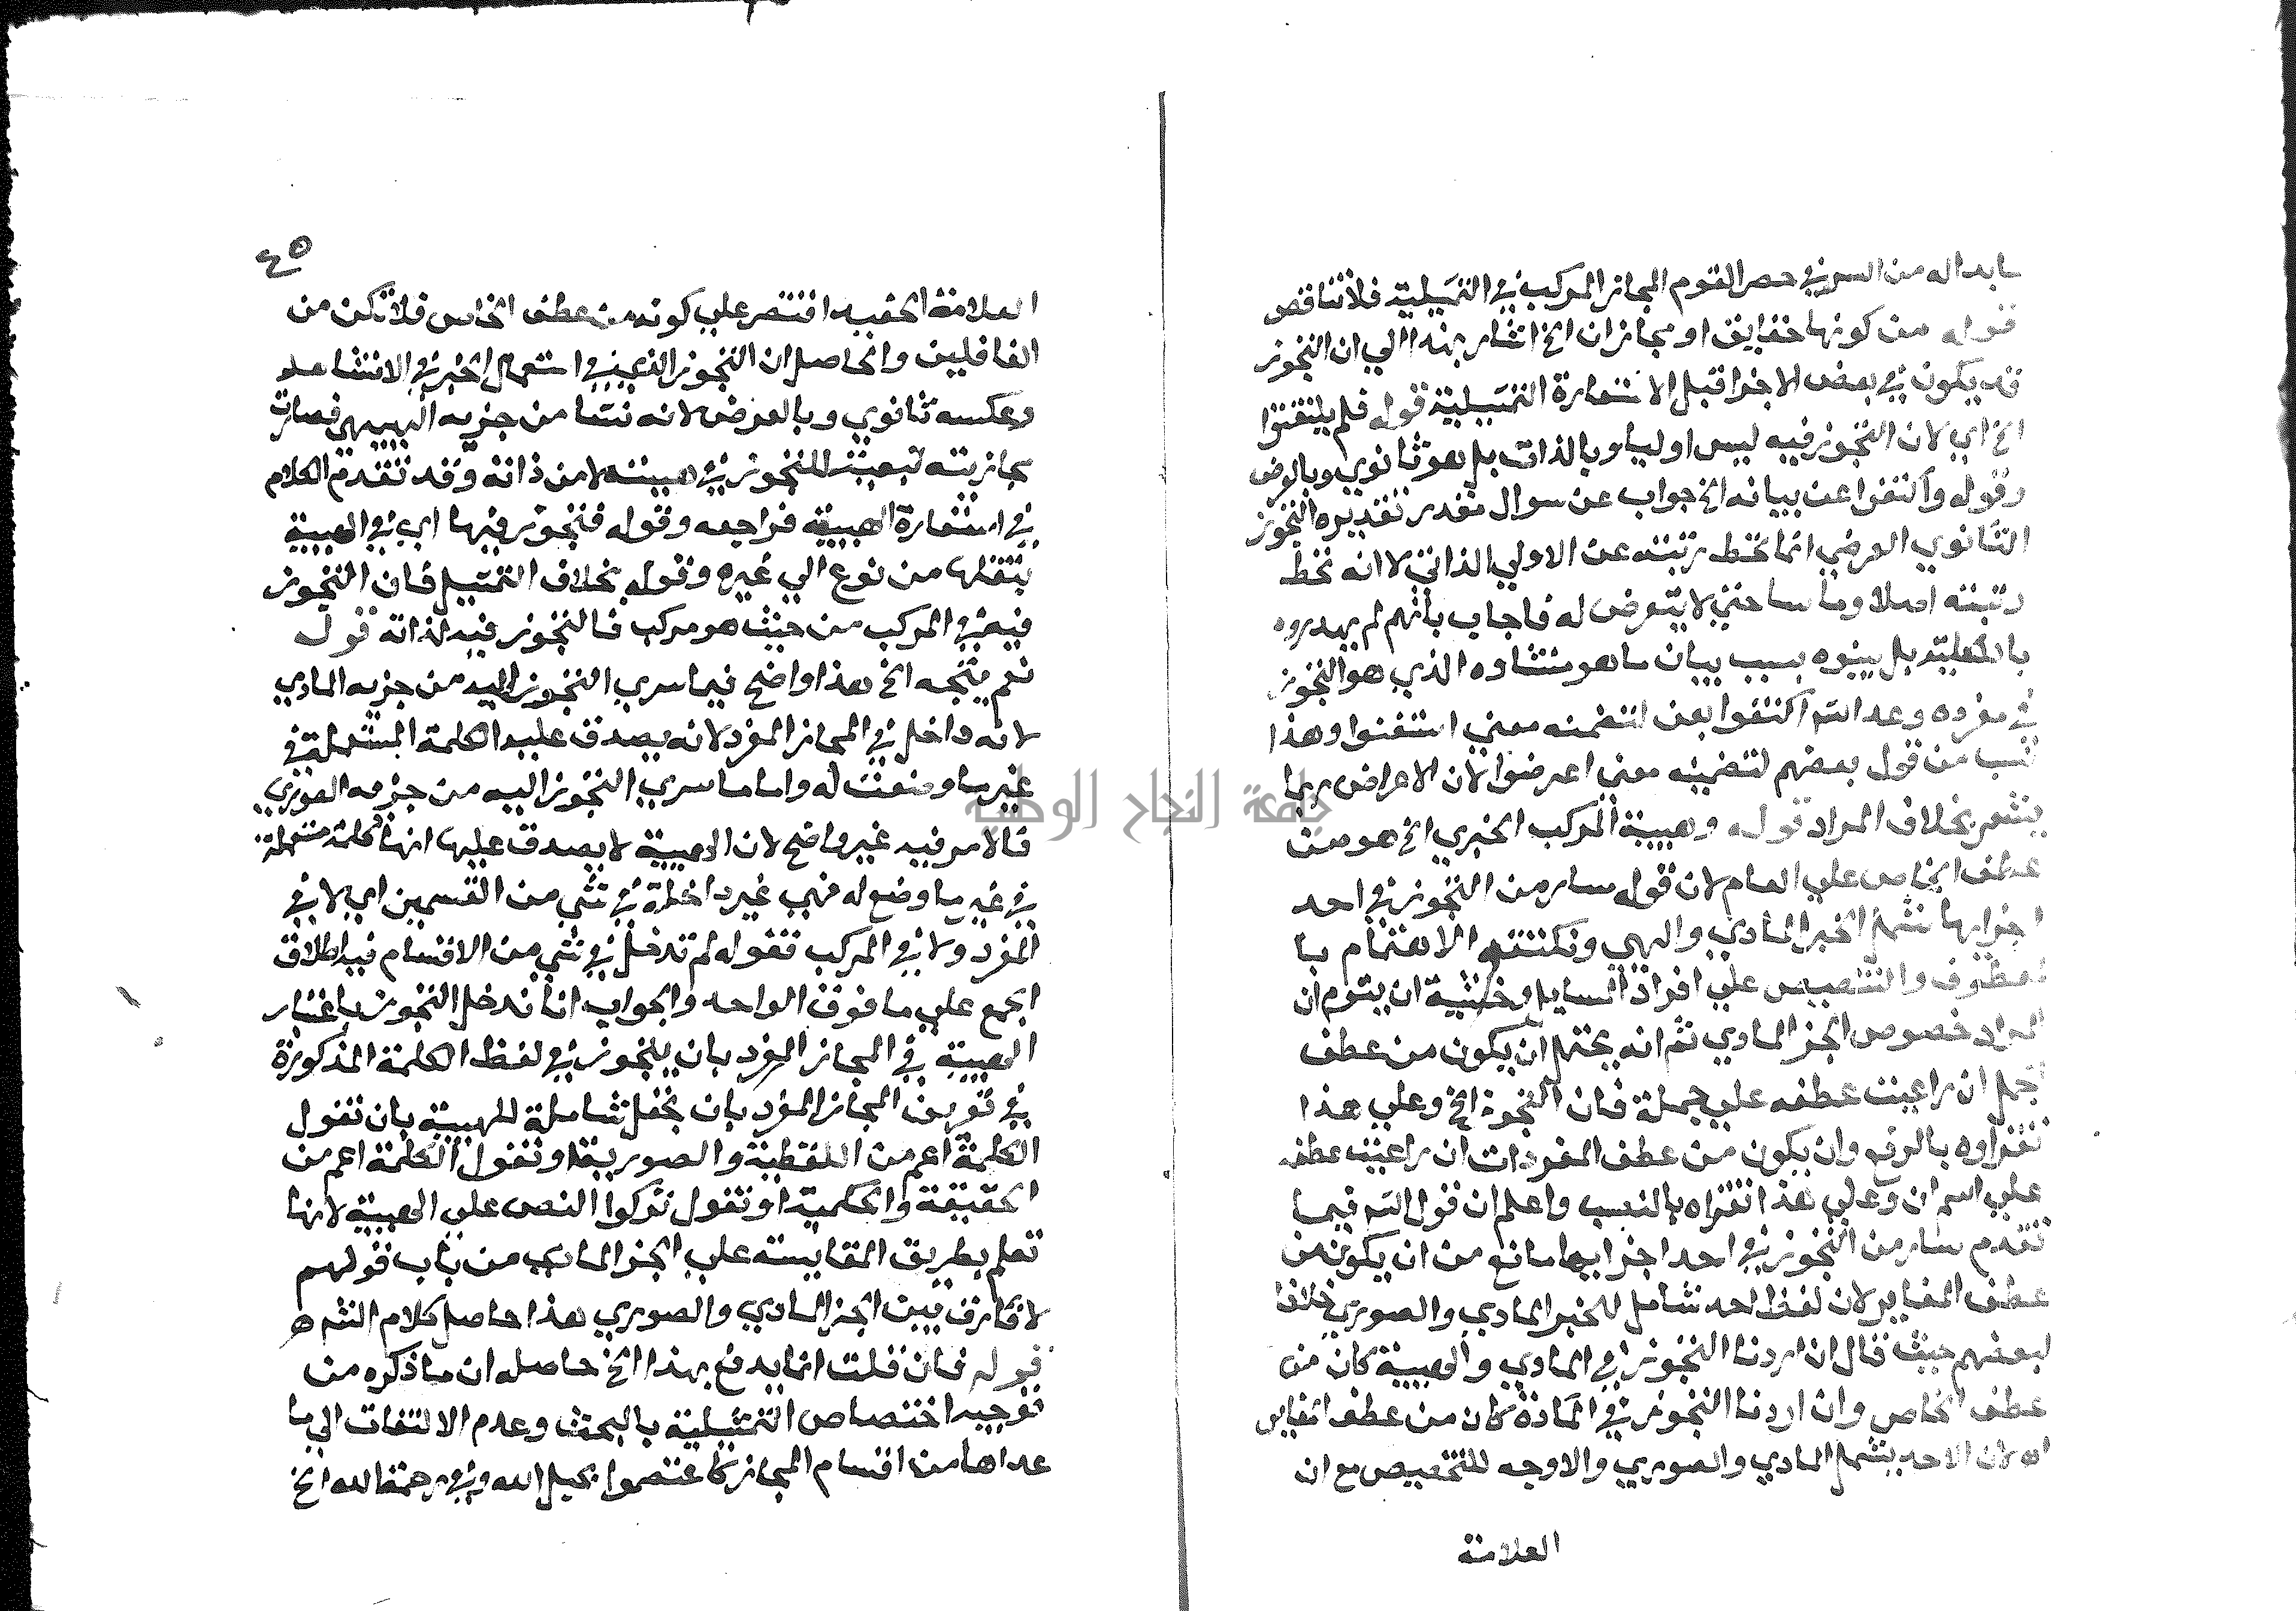 ما بداله من السر في حصر القوم المجاز المركب في التمثيلية فلا تناقض
قوله من كونها حقايق او مجازات الخ اشار بهذا الي ان التجوز
قد يكون في بعض الاجزا قبل الاستعارة التمثيلية قوله فلم يلتفتوا
الخ اي لان التجوز فيه ليس اوليا وبالذات بل هو ثانوي وبالعرض
وقوله واكتفوا عن بيانه الخ جواب عن سوال مقدر تقديره التجوز
الثانوي العرضي انما تحط رتبته عن الاولي الذاتي لا انه تحط
رتبته اصلا وراسا حتي لا يتعرض له فاجاب بانهم لم يهدروه
بالكلية بل بينوه بسبب بيان ما هو منشاوه الذي هو التجوز
في مفرده وعدا الش اكتفوا بعن لتضمنه معني استغنوا وهذا
انسب من قول بعضهم لتضمينه معني اعرضوا لان الاعراض ربما
يشعر بخلاف المراد قوله وهيية المركب الخبري الخ هو من
عطف الخاص علي العام لان قوله سار من التجوز في احد
اجزايها شمل الجز المادي والهيي ونكتته الاهتمام با
لمعطوف والتنصيص علي افراد السايل وخشية ان يتوم ان
المراد خصوص الجز المادي ثم انه يحتمل ان يكون من عطف
الجمل ان راعيت عطفه علي جملة فان التجوز الخ وعلي هذا
تقراوه بالرفع وان يكون من عطف المفردات ان راعيت عطفه
علي اسم ان وعلي هذا تقراه بالنصب واعلم ان قول الش فيما
تقدم سار من التجوز في احد اجزايها مانع من ان يكون من
عطف المغاير لان لفظ احد شامل للجز المادي والصوري خلافا
لبعضهم حيث قال ان اردنا التجوز في المادي والهيية كان من
عطف الخاص وان اردنا التجوز في المادة كان من عطف المغاير
اه لان الاحد يشمل المادي والصوري والاوجه للتخصيص مع ان
العلامة
٤٥
العلامة الحفيد اقتصر علي كونه من عطف الخاص فلا تكن من
الغافلين والحاصل ان التجوز الذي في استعمال الخبر في الانشا
وعكسه ثانوي وبالعرض لانه نشا من جزيه الهيي فصارت
مجازيته تبعيته للتجوز في هييته لا من ذاته وقد تقدم الكلام
في استعارة الهيية فراجعه وقوله فتجوز فيها اي في الهيية
بنقلها من نوع الي غيره وقوله بخلاف التمثيل فان التجوز
فيه في المركب من حيث هو مركب فالتجوز فيه لذاته قوله
نعم يتجه الخ هذا واضح فيما سري التجوز اليه من جزيه المادي
لانه داخل في المجاز المفرد لانه يصدق عليه الكلمة المستعملة في
غير ما وضعت له واما ما سري التجوز اليه من جزءه الصوري
فالامر فيه غير واضح لان الهيية لا يصدق عليها انها كلمة مستعملة
في غير ما وضع له فهي غير داخلة في شي من القسمين اي لا في
المفرد ولا في المركب فقوله لم تدخل في شي من الاقسام فيه اطلاق
الجمع علي ما فوق الواحد والجواب انا ندخل التجوز باعتبار
الهيية في المجاز المفرد بان يتجوز في لفظ الكلمة المذكورة
في تعريف المجاز المفرد بان تجعل شاملة للهيية بان نقول
الكلمة اعم من اللفظية والصورية او نقول الكلمة اعم من
الحقيقة والحكمية او نقول تركوا النص علي الهيية لانها
تعلم بطريق المقايسة علي الجز المادي من باب قولهم
لا فارق بين الجز المادي والصوري هذا حاصل كلام الش ه
قوله فان قلت انما يدفع بهذا الخ حاصله ان ما ذكره من
توجيه اختصاص التمثيلية بالبحث وعدم الالتفات الي ما
عداها من اقسام المجاز كاعتصموا بحبل الله وفي رحمة الله الخ
جامعة النجاح الوطنية